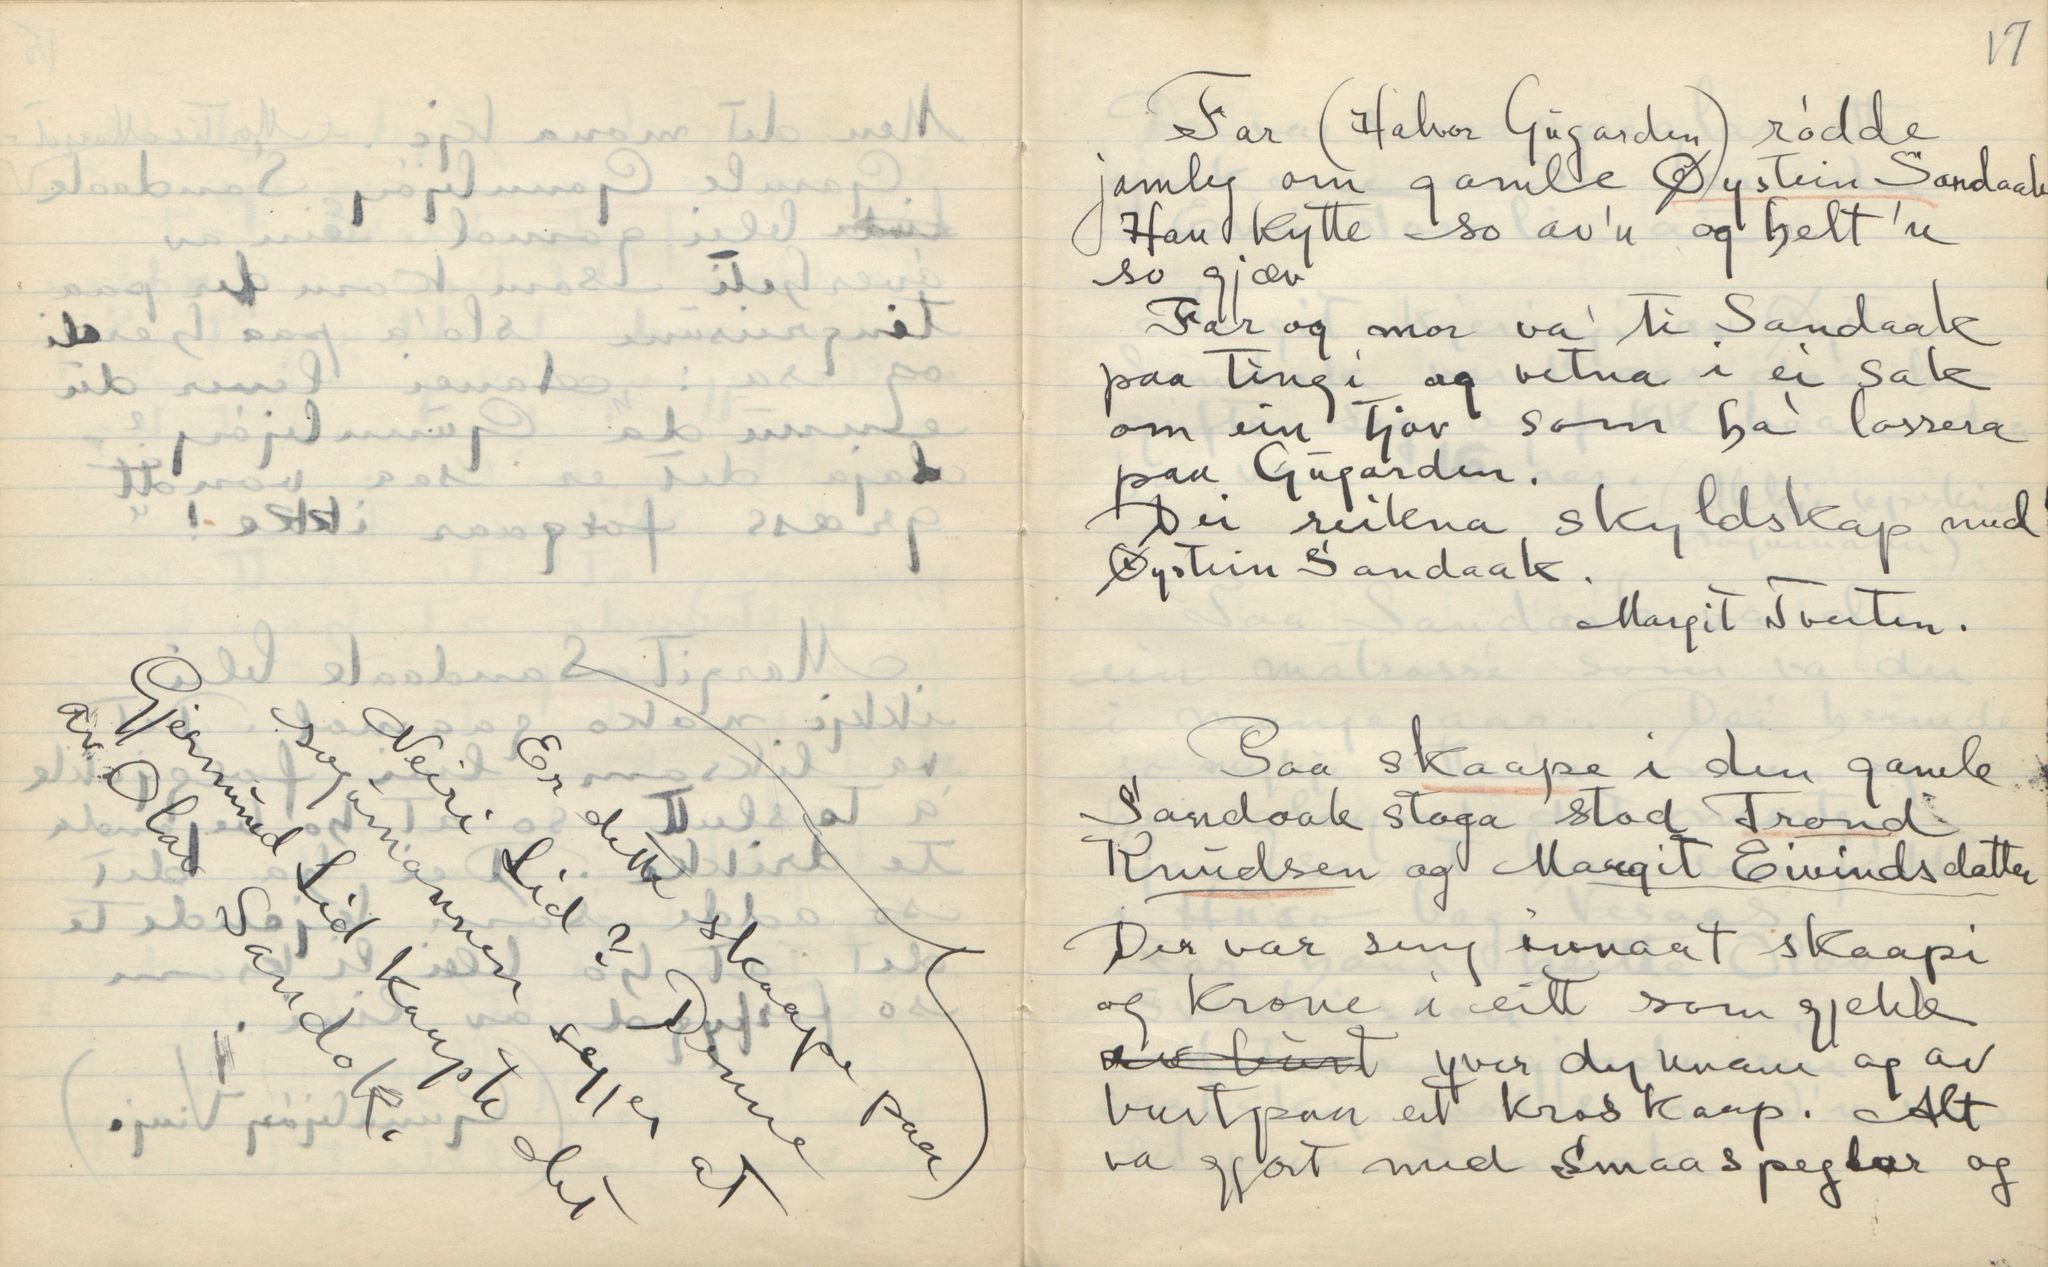 Er dette skaape paa
Neiri Lid? Denne
sogumannen segjer at
Gjermund Lid kaupte det
av Olav Sandok.
17
Far (Halvor Gugarden) rødde
jamleg om gamle Øystein Sandaak
Han kytte so av'n og helt'n
so gjæv
Far og mor va' ti Sandaak
paa tingi og vitna i ei sak
om ein tjov som ha' lossera
paa Gugarden.
Dei reikna skyldskap med
Øystein Sandaak.
Margit Tveiten.
Paa skaape i den gamle
Sandaak stoga stod Trond
Knudsen og Margit Eivindsdatter
Der var seng innaat skaapi
og krone i eitt som gjekk
yver dynnane og av
burtpaa eit kroskaap. Alt
va gjort med smaaspeglar og